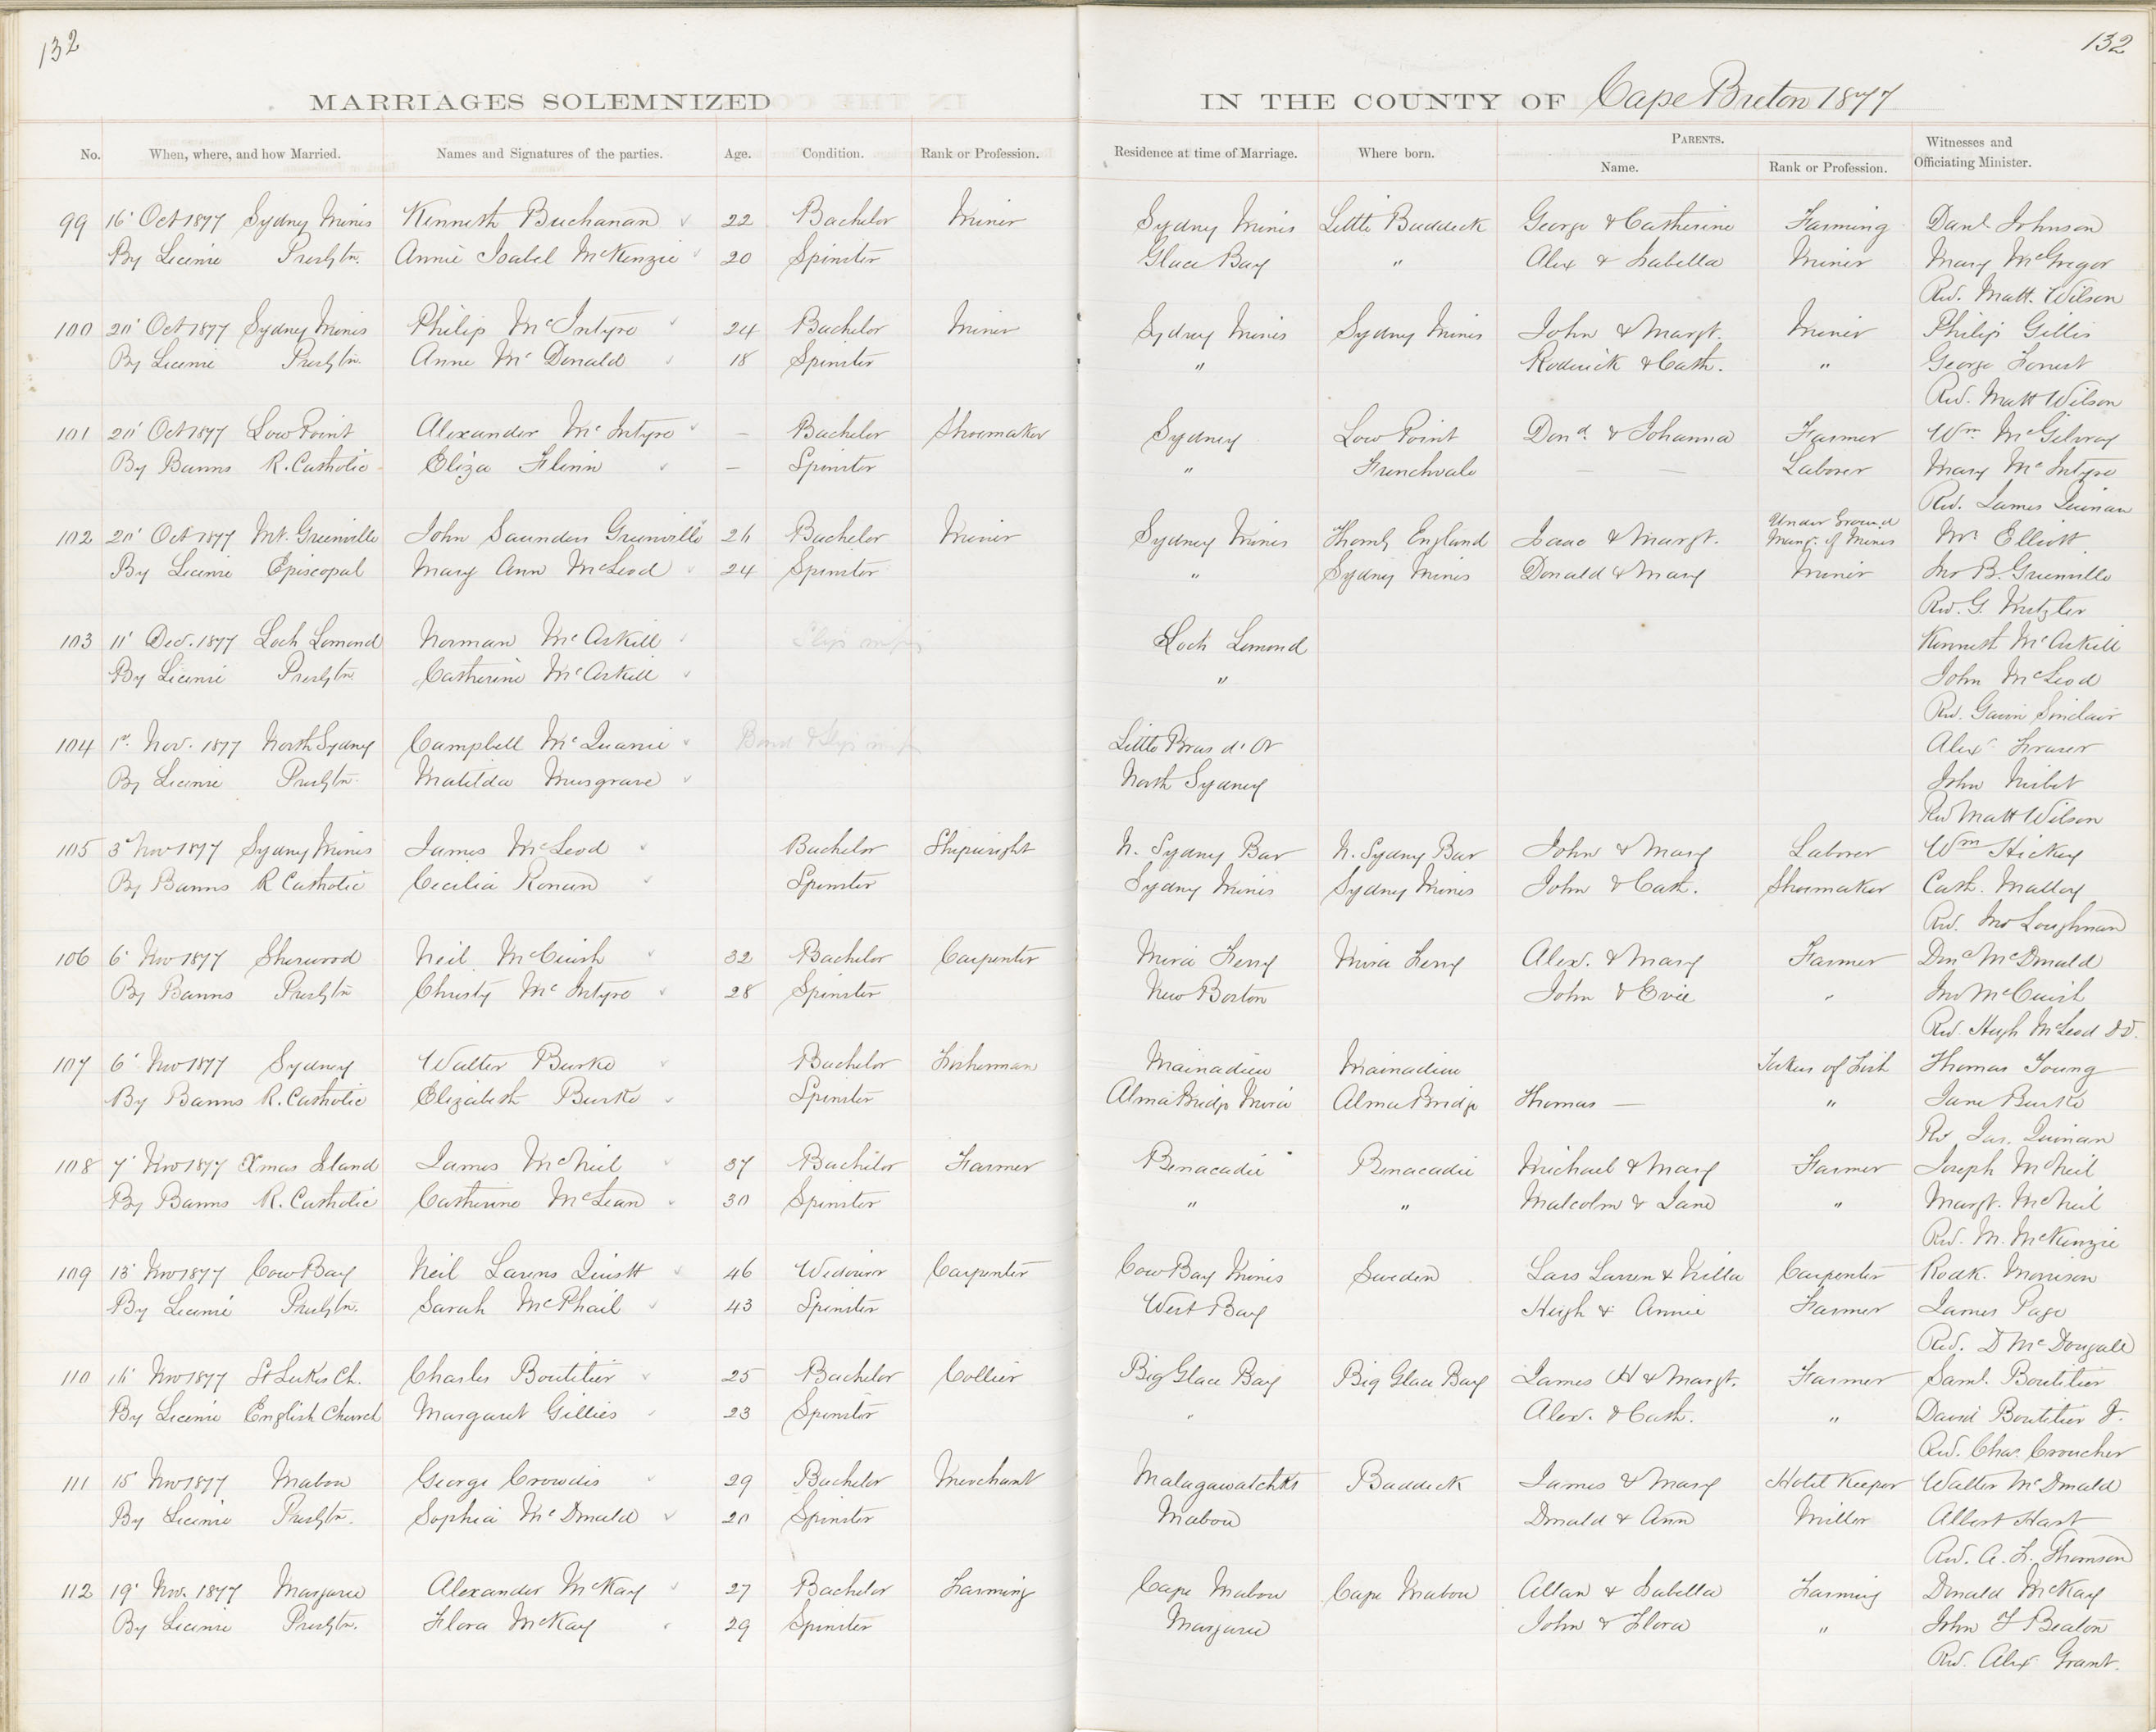 132
132
MARRIAGES SOLEMNIZED IN THE COUNTY OF Cape Breton 1877
No. When, where, and how Married. Names and Signatures of the parties. Age. Condition. Rank or Profession. Residence at time of Marriage. Where born. PARENTS. Name. Rank or Profession. Witnesses and Officiating Minister.
99 16' Oct 1877 Sydney Mines Kenneth Buchanan 22 Bachelor Miner Sydney Mines Little Baddeck George & Catherine Farming Danl Johnson
By License Presbytn. Annie Isabel McKenzie 20 Spinster Glace Bay " Alex & Isabella Miner Mary McGregor
Rev. Matt. Wilson
100 20' Oct 1877 Sydney Mines Philip McIntyre 24 Bachelor Miner Sydney Mines Sydney Mines John & Margt. Miner Philip Gillis
By License Presbytn. Anne McDonald 18 Spinster " Roderick & Cath. " George Forrest
Rev. Matt Wilson
101 20' Oct 1877 Low Point Alexander McIntyre — Bachelor Shoemaker Sydney Low Point Dond. & Johanna Farmer Wm McGilvray
By Banns R. Catholic Eliza Flinn — Spinster " Frenchvale — — Laborer Mary McIntyre
Rev. James Quinan
102 20' Oct 1877 Mt. Greenville John Saunders Greenville 26 Bachelor Miner Sydney Mines England Isaac & Margt. Under Ground Mang. of Mines Mr Elliott
By License Episcopal Mary Ann McLeod 24 Spinster " Sydney Mines Donald & Mary Miner Jno B. Greenville
Rev. G. Metzler
103 11' Dec. 1877 Loch Lomond Norman McAskill Slip missing Loch Lomond Kenneth McAskill
By License Presbytn. Catherine McAskill " John McLeod
Rev. Gavin Sinclair
104 1st. Nov. 1877 North Sydney Campbell McQuarrie Bond & Slip missing Little Bras d'Or Alex Fraser
By License Presbytn. Matilda Musgrave North Sydney John Nisbet
Rev Matt Wilson
105 3d Nov 1877 Sydney Mines James McLeod Bachelor Shipwright N. Sydney Bar N. Sydney Bar John & Mary Laborer Wm Hickey
By Banns R Catholic Cecilia Ronan Spinster Sydney Mines Sydney Mines John & Cath. Shoemaker Cath. Malloy
Rev. Jno Loughnan
106 6' Nov 1877 Sherwood Neil McCuish 32 Bachelor Carpenter Mira Ferry Mira Ferry Alex. & Mary Farmer Donc McDonald
By Banns Presbytn Christy McIntyre 28 Spinster New Boston John & Evie " Jno McCuish
Rev. Hugh McLeod DD.
107 6' Nov 1877 Sydney Walter Burke Bachelor Fisherman Mainadieu Mainadieu Taker of Fish Thomas Young
By Banns R. Catholic Elizabeth Burke Spinster Alma Bridge Mira Alma Bridge Thomas — " Jane Burke
Rev Jas. Quinan
108 7' Nov 1877 Xmas Island James McNeil 37 Bachelor Farmer Benacadie Benacadie Michael & Mary Farmer Joseph McNeil
By Banns R. Catholic Catherine McLean 30 Spinster " " Malcolm & Jane " Margt. McNeil
Rev. M. McKenzie
109 13' Nov 1877 Cow Bay Neil Larens Quistt 46 Widower Carpenter Cow Bay Mines Sweden Lars Larren & Killa Carpenter Rodk. Morrison
By License Presbytn. Sarah McPhail 43 Spinster West Bay Hugh & Annie Farmer James Page
Rev. D McDougall
110 11' Nov 1877 St Lukes Ch. Charles Boutilier 25 Bachelor Collier Big Glace Bay Big Glace Bay James H & Margt. Farmer Saml. Boutilier
By License English Church Margaret Gillies 23 Spinster " Alex. & Cath. " David Boutilier Jr.
Rev. Chas. Croucher
111 15' Nov 1877 Mabou George Crowdis 29 Bachelor Merchant Malagawatchkt Baddeck James & Mary Hotel Keeper Walter McDonald
By License Presbytn. Sophia McDonald 20 Spinster Mabou Donald & Ann Miller Albert Hart
Rev. A. F. Thomson
112 19' Nov. 1877 Margaree Alexander McKay 27 Bachelor Farming Cape Mabou Cape Mabou Allan & Isabella Farming Donald McKay
By License Presbytn. Flora McKay 29 Spinster Margaree John & Flora " John F Beaton
Rev. Alex Grant.